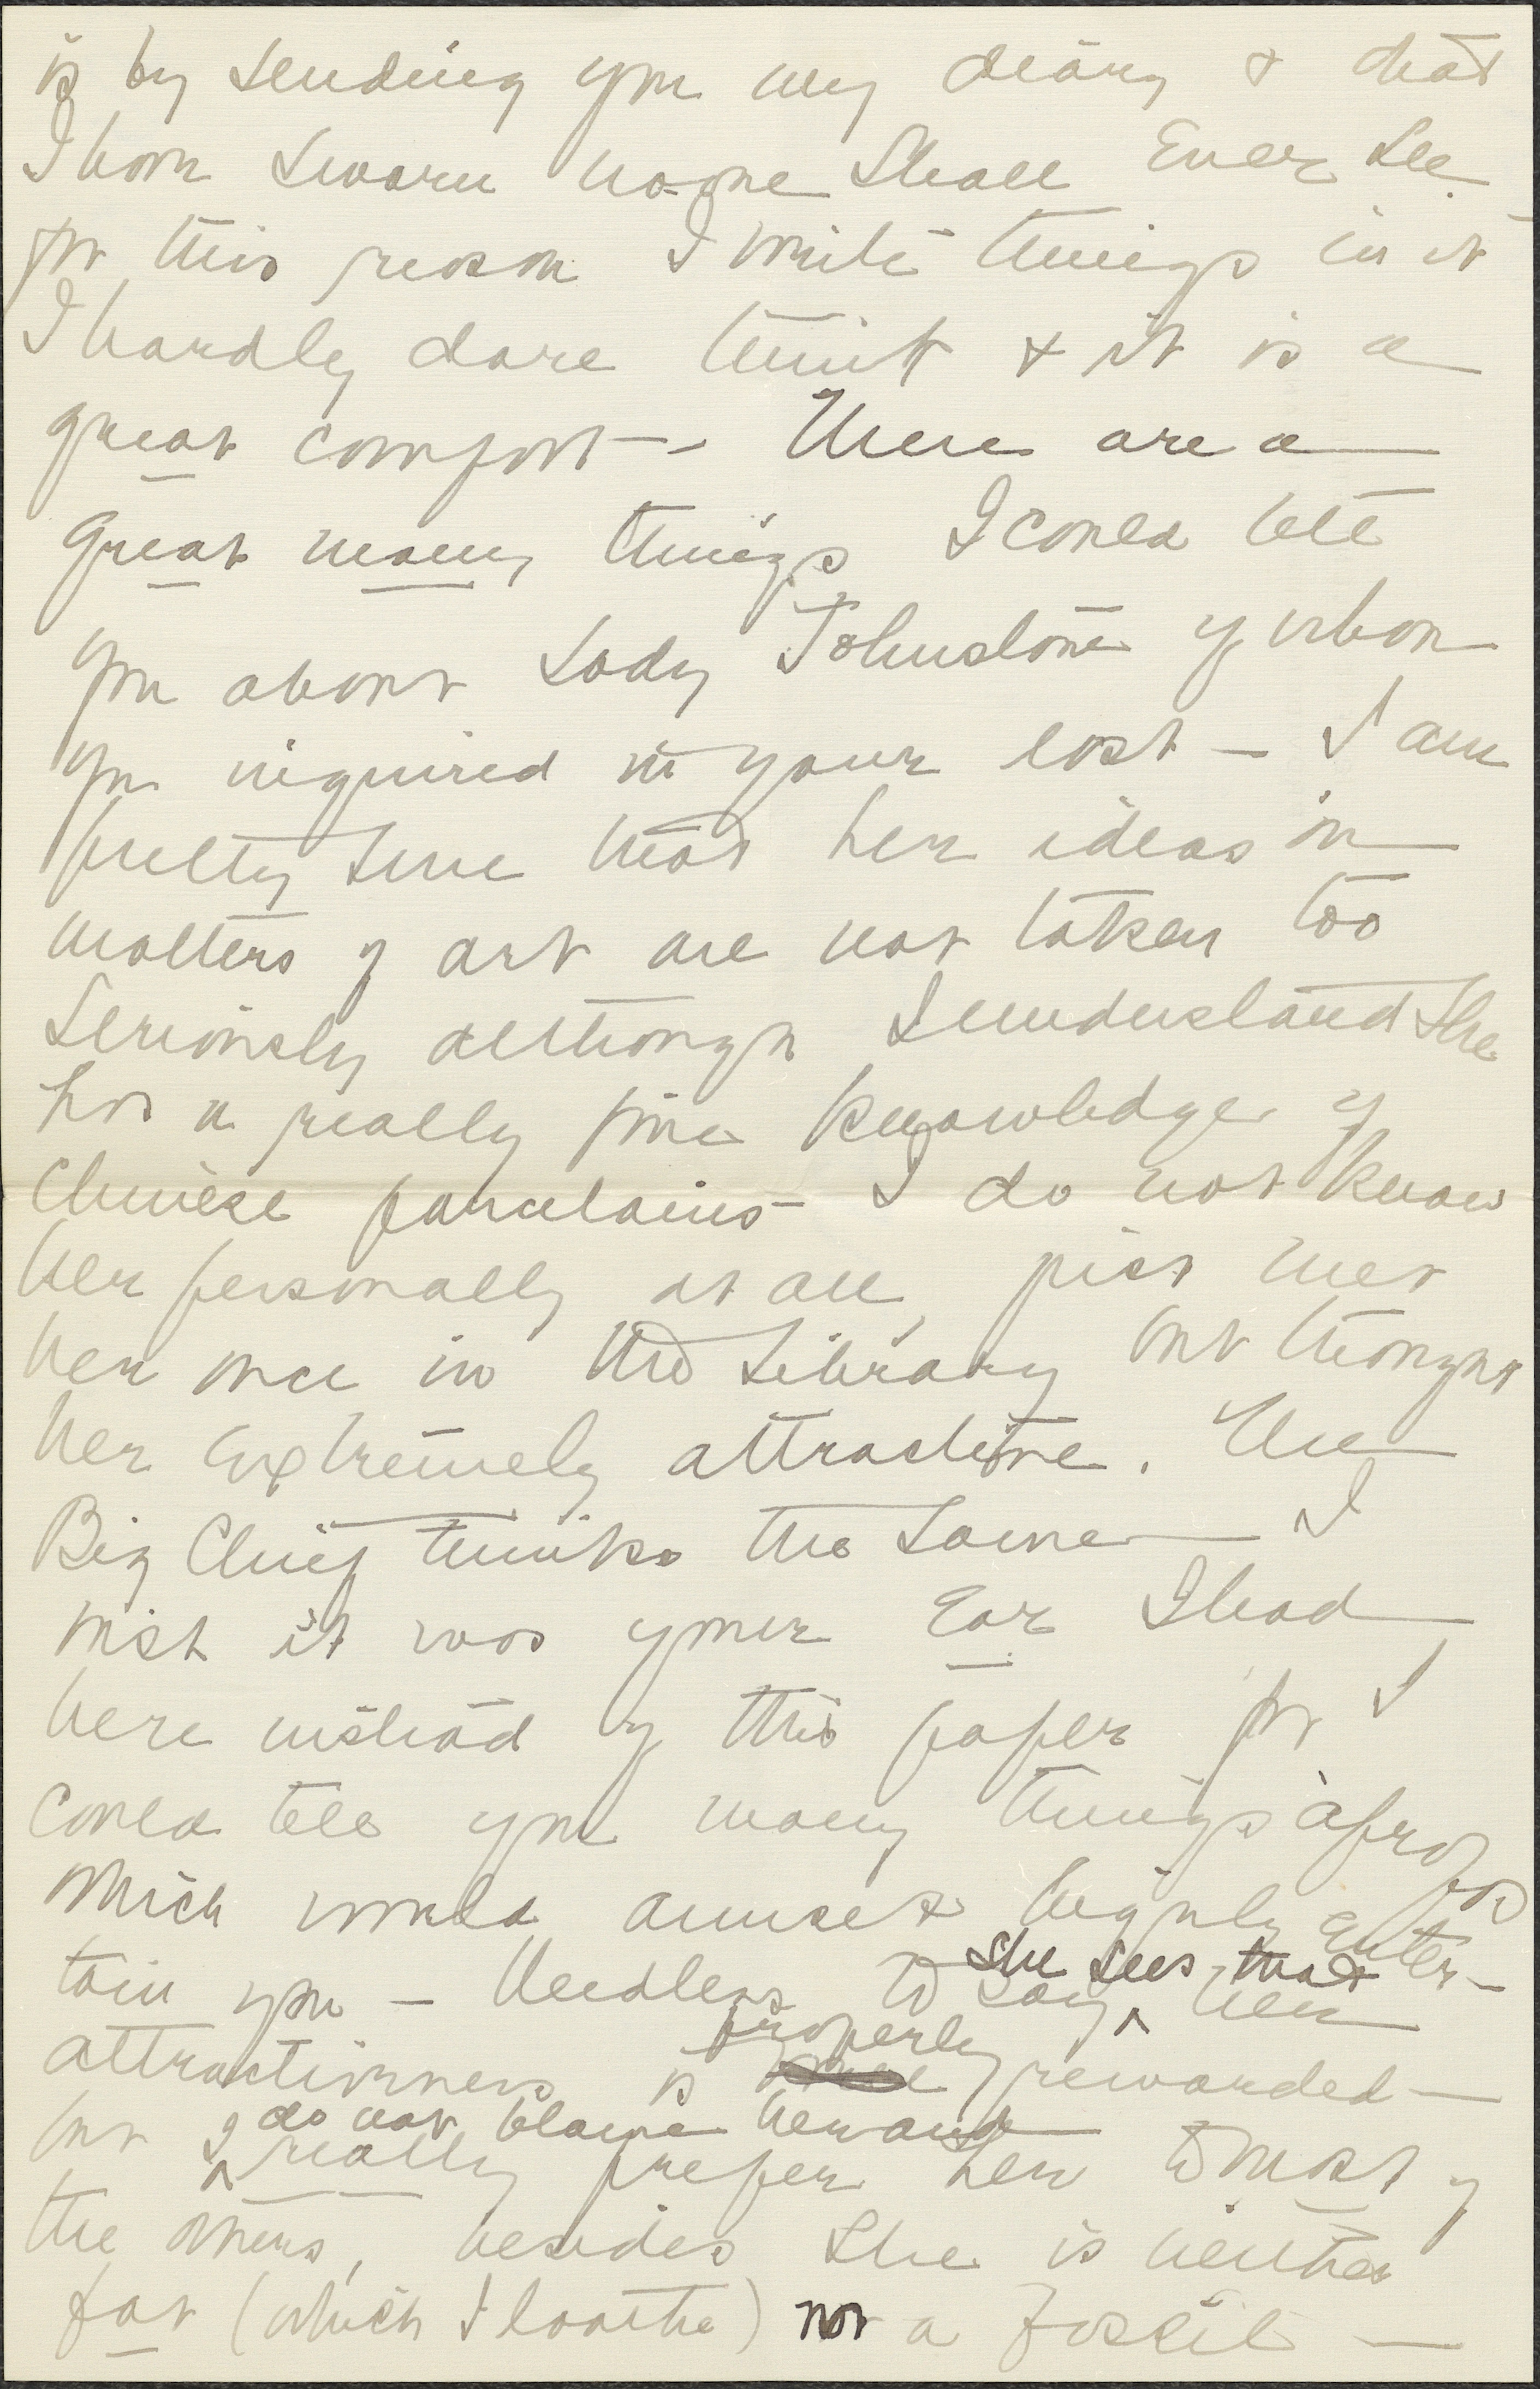 is by sending you my diary & that
I have sworn no-one shall ever see.
for this reason I write things in it
I hardly dare think & it is a
great comfort -- There are a
great many things I could tell
you about Lady Johnstone of whom
you inquired in your last – I am
pretty sure that her ideas in
matters of art are not taken too
seriously although I understand she
has a really fine knowledge of
Chinese porcelains – I do not know
her personally at all, just met
her once in the Library but thought
her extremely attractive. The
Big Chief thinks the same — I
wish it was your ear I had
here instead of this paper for I
could tell you many things àpropos
which would amuse & highly enter-
tain you – Needless to say ^ she sees that her
attractiveness is properly rewarded —
but I ^ do not blame her and really prefer her to most of
the others, besides she is neither
fat (which I loathe) nor a fossil —